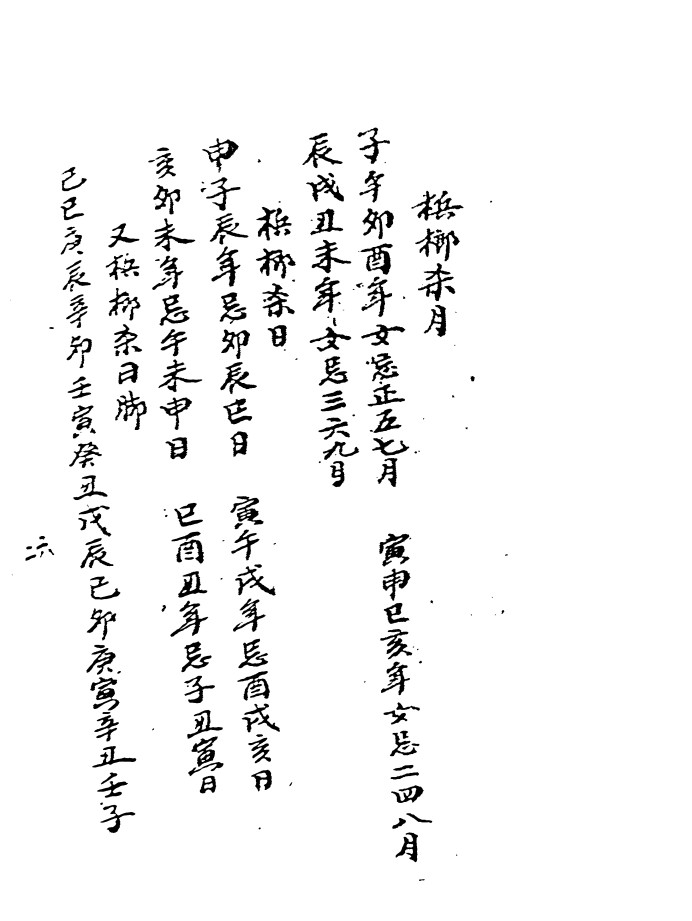 梹榔杀月
子午卯酉年女忌正五七月　寅申巳亥年女忌二四八月
辰戌丑未年女忌三六九月
梹榔杀日
申子辰年忌卯辰巳日　寅午戌年忌酉戌亥日
亥卯未年忌午未申日　巳酉丑年忌子丑寅日
又梹榔杀日脚
己巳庚辰辛卯壬寅癸丑戊辰己卯庚寅辛丑壬子
二六